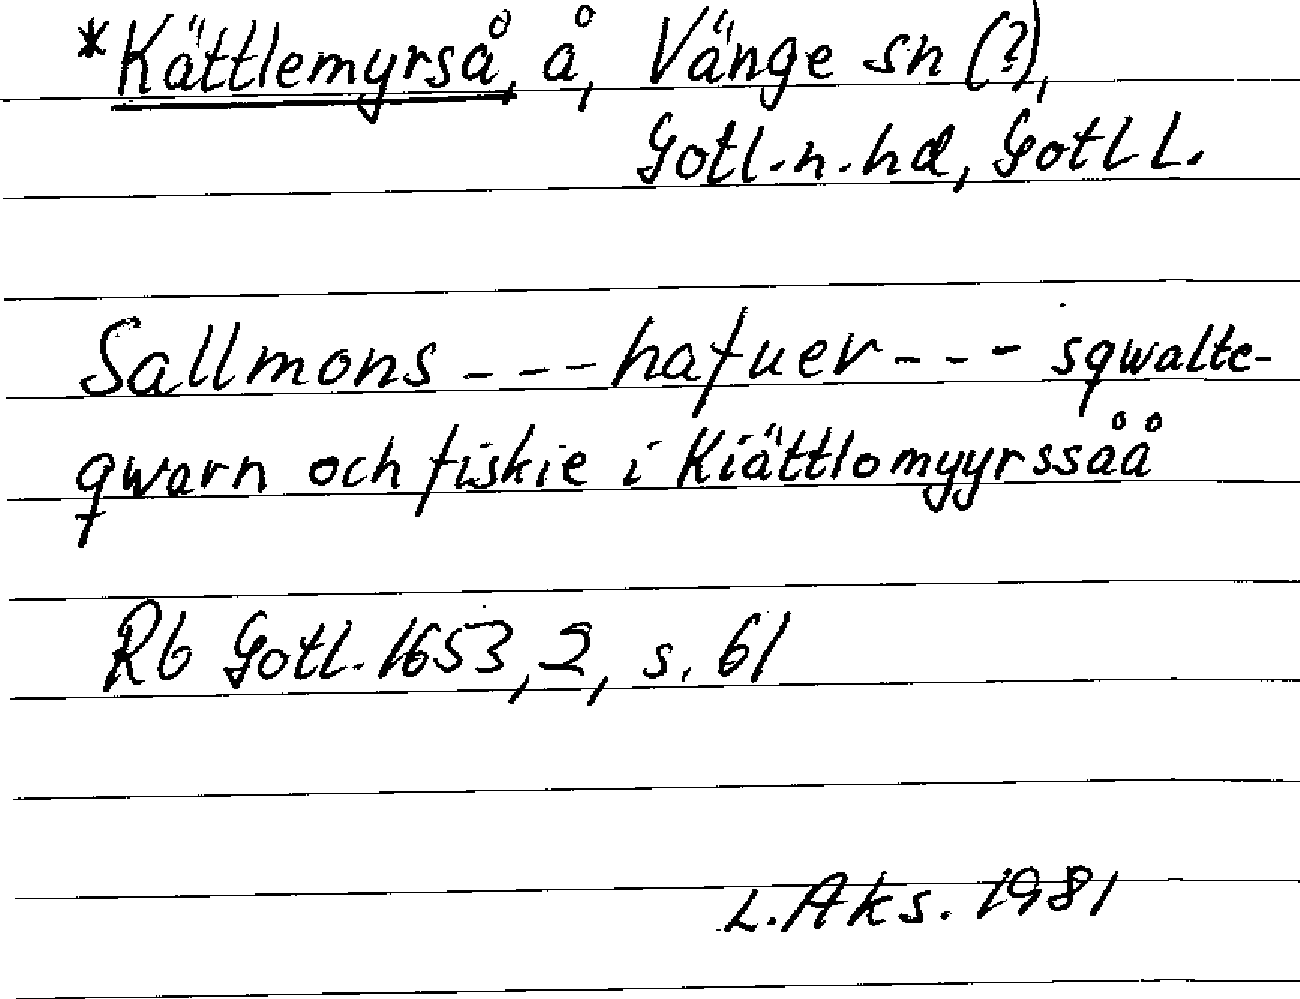 *Kättlemyrså, å, Vänge sn (?),
Gotl.n.hd, Gotl L.
Sallmons - - - hafuer - - - sqwalte-
qwarn och fiskie i Kiättlomyyrssåå
Rb Gotl. 1653, 2, s. 61
L. Aks. 1981